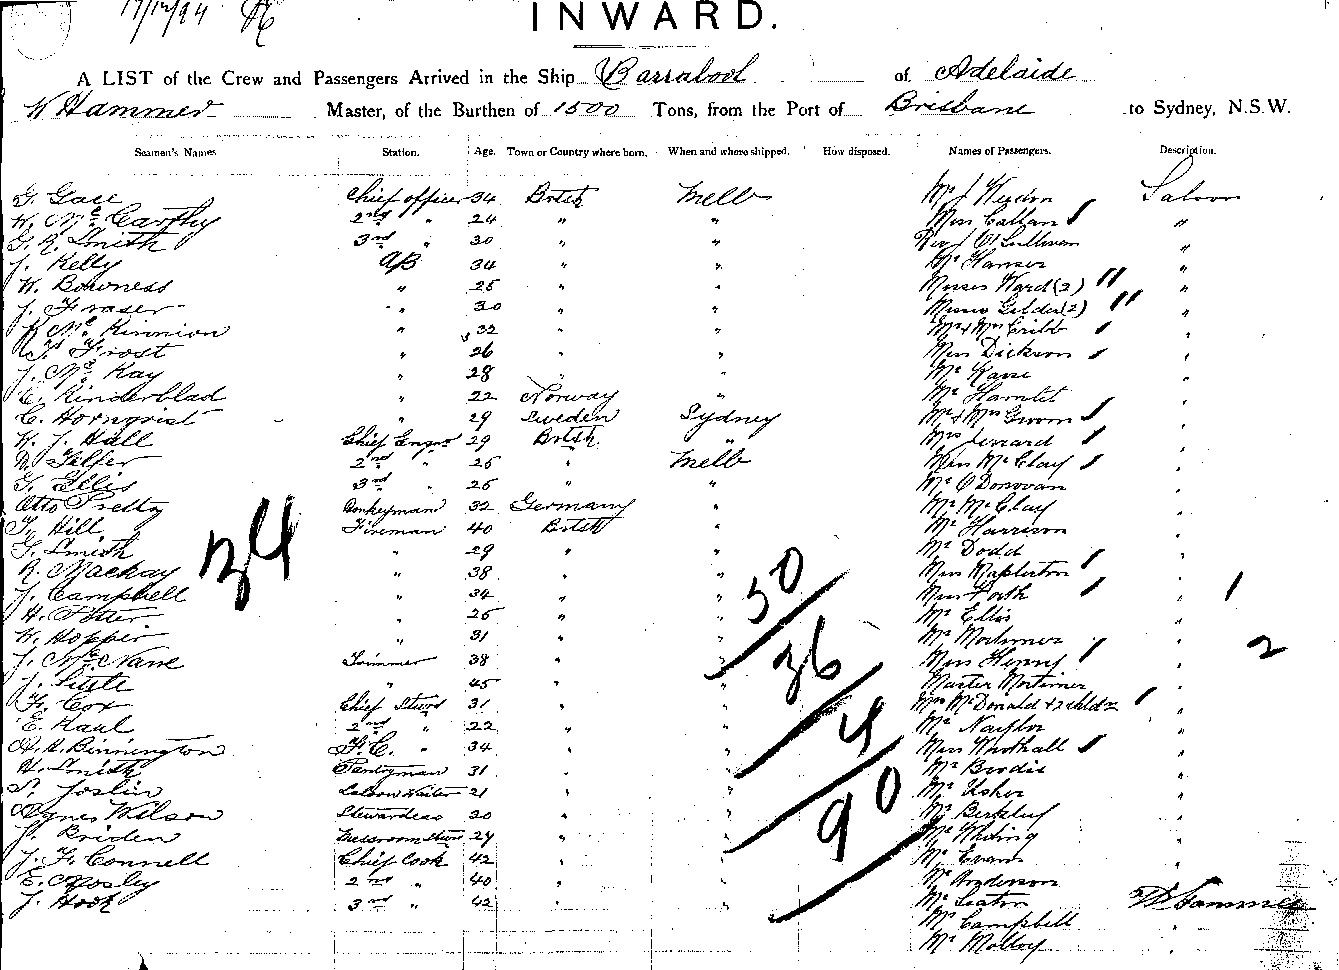 17/12/94
INWARD.
A LIST of the Crew and Passengers Arrived in the Ship Barrabool of Adelaide
W Hammer Master, of the Burthen of 1500 Tons, from the Port of Brisbane to Sydney, N.S.W.
Seamen's Names Station. Age. Town or Country where born. When and where shipped. How disposed. Names of Passengers. Description.
Chief officer 34 Britsh Melb Saloon
W. Mc Carthy 2nd " 24 " " Miss Callan "
G. R. Smith 3rd " 30 " " Rev J O'Sullivan "
J. Kelly AB 34 " " Mr Hansen "
W. Bowness " 25 " " Misses Ward (2) "
J. Fraser " 30 " " (2) "
Mc Kinnion " 32 " " Mr & Mrs Cribb "
Frost " 26 " " Miss Dickson "
J. Mc Kay " 28 " " Mr "
C. Kinderblad " 22 Norway " Mr Hamlet "
C. Hornqvist " 29 Sweden Sydney Mr & Mrs Groom "
W. J. Hall Chief Engnr 29 Britsh " Mrs "
Telfer 2nd " 25 " Melb Miss Mc Clay "
G. Ellis 3rd " 25 " " Mr O'Donovan "
Otto Pretty Donkeyman 32 Germany " Mr McClay "
T. Hill Fireman 40 Britsh " Mr Harrison "
G. Smith " 29 " " Mr Dodd "
R. Mackay " 38 " " Miss Mapleston "
J. Campbell " 34 " " Miss "
H. Potter " 25 " " Mr Ellis "
W. Hopper " 31 " " Mr Mortimer "
J. McNane Trimmer 38 " " Miss Henny "
J. Little " 45 " " Master Mortimer "
Cox Chief Stwd 31 " " Mrs McDonald "
E. Kaul 2nd " 22 " " Mr Naylor "
Binnington F.C. " 34 " " Miss "
Smith Pantryman 31 " " Mr Brodie "
Joslin Saloon Waiter 21 " " Mr Usher "
Agnes Wilson Stewardess 30 " " Mr "
Briden Messroom Stwd 24 " " Mr Whiting "
J. F. Connell Chief Cook 42 " " Mr Evans "
E. Mosley 2nd " 40 " Mr Anderson
J. Hook 3rd " 42 " Mr Seaton W Hammer
Mr Campbell
Mr Molloy
34
50
36
4
90
1
2